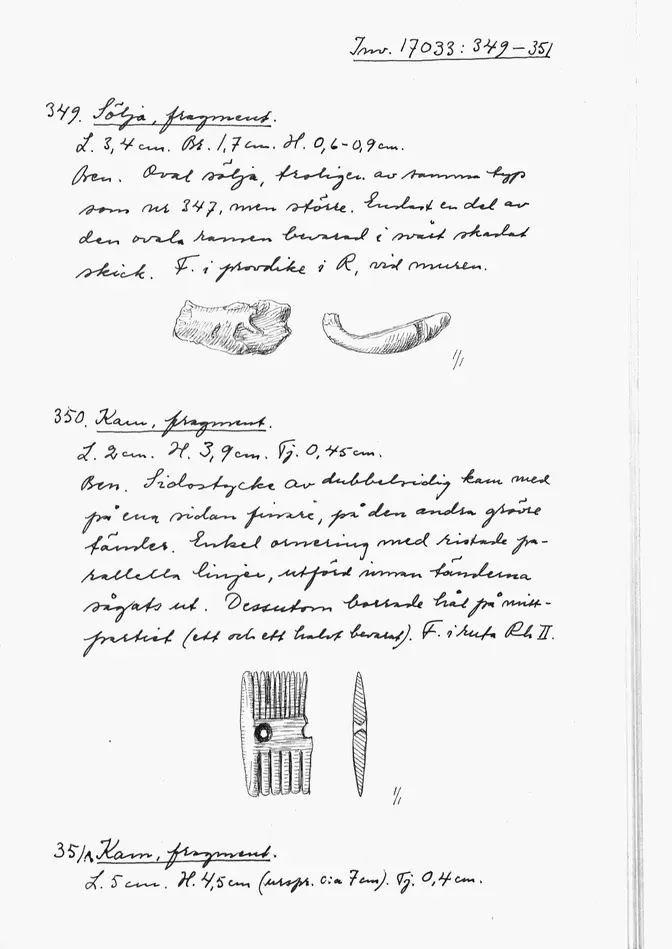 Inv. 17033: 349-351
349. Sölja, fragment.
L. 3,4 cm. Br. 1,7 cm. H. 0,6-0,9 cm.
Ben. Oval sölja, troligen av samma typ
som nr 347, men större. Endast en del av
den ovala ramen bevarad i svårt skadat
skick. F. i provdike i R, vid muren.
1/1
350. Kam, fragment.
L. 2 cm. H. 3,9 cm. Tj. 0,45 cm.
Ben. Sidostycke av dubbelsidig kam med
på ena sidan finare, på den andra grövre
tänder. Enkel ornering med ristade pa-
rallella linjer, utförd innan tänderna
sågats ut. Dessutom borrade hål på mitt-
partiet (ett och ett halvt bevarat). F. i ruta Rh II.
1/1
351. Kam, fragment.
L. 5 cm. H. 4,5 cm (urspr. c:a 7 cm). Tj. 0,4 cm.